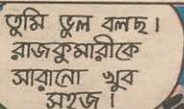 তুমি ভুল বলছ।
রাজকুমারীকে
সারানো খুব
সহজ।